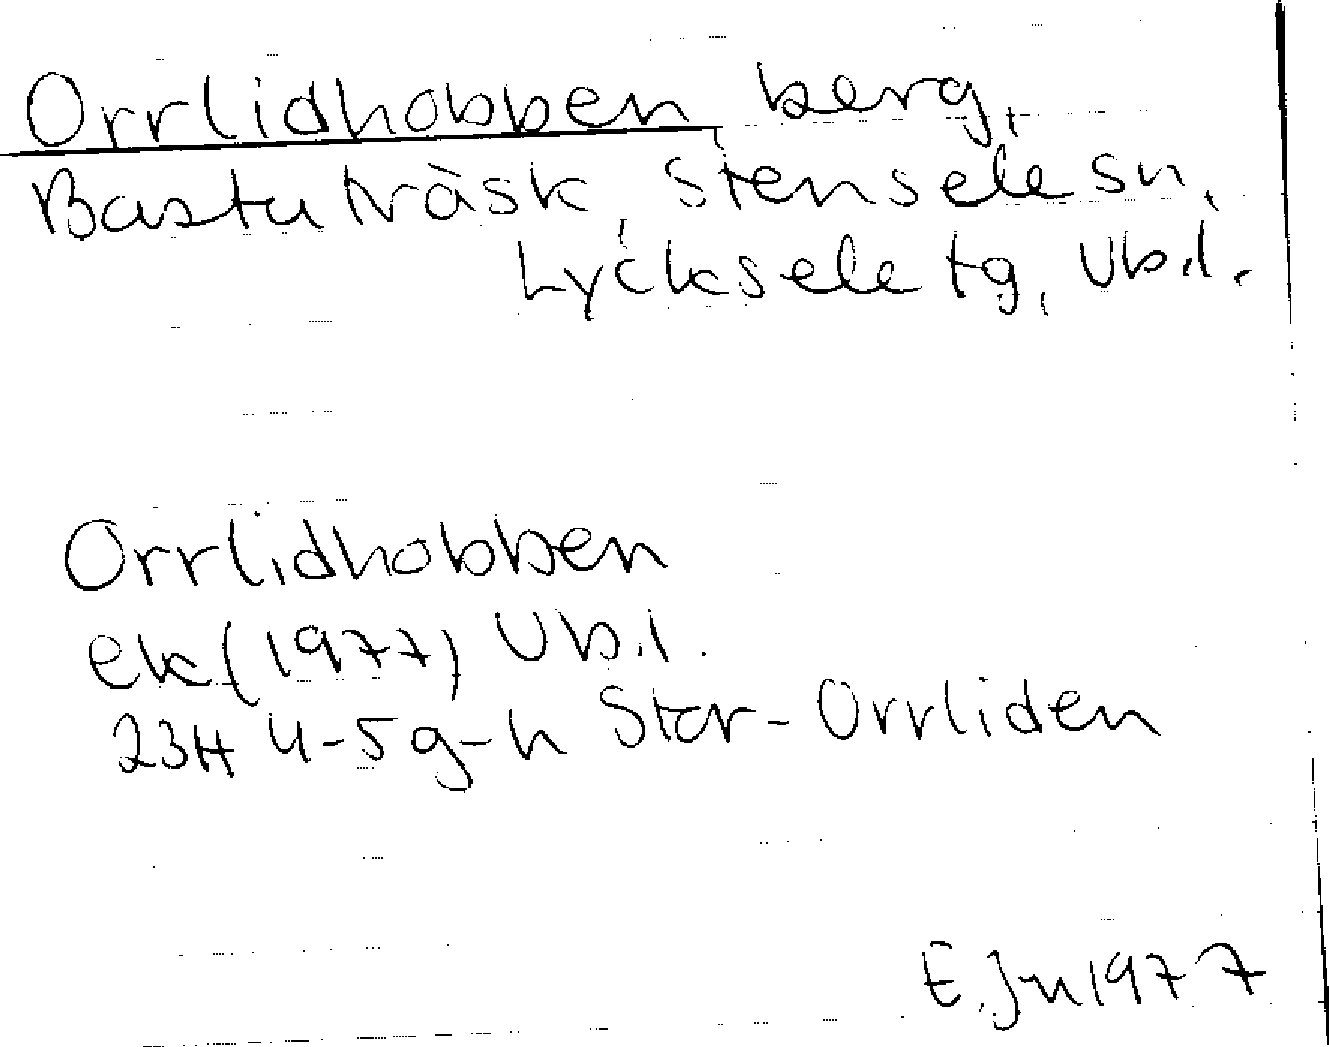 Orrlidhobben berg,
Bastuträsk, Stensele sn,
Lycksele tg, Vb.l.
Orrlidhobben
ek (1977) Vb.l.
23H 4-5g-h Stor-Orrliden
E.Jn 1977